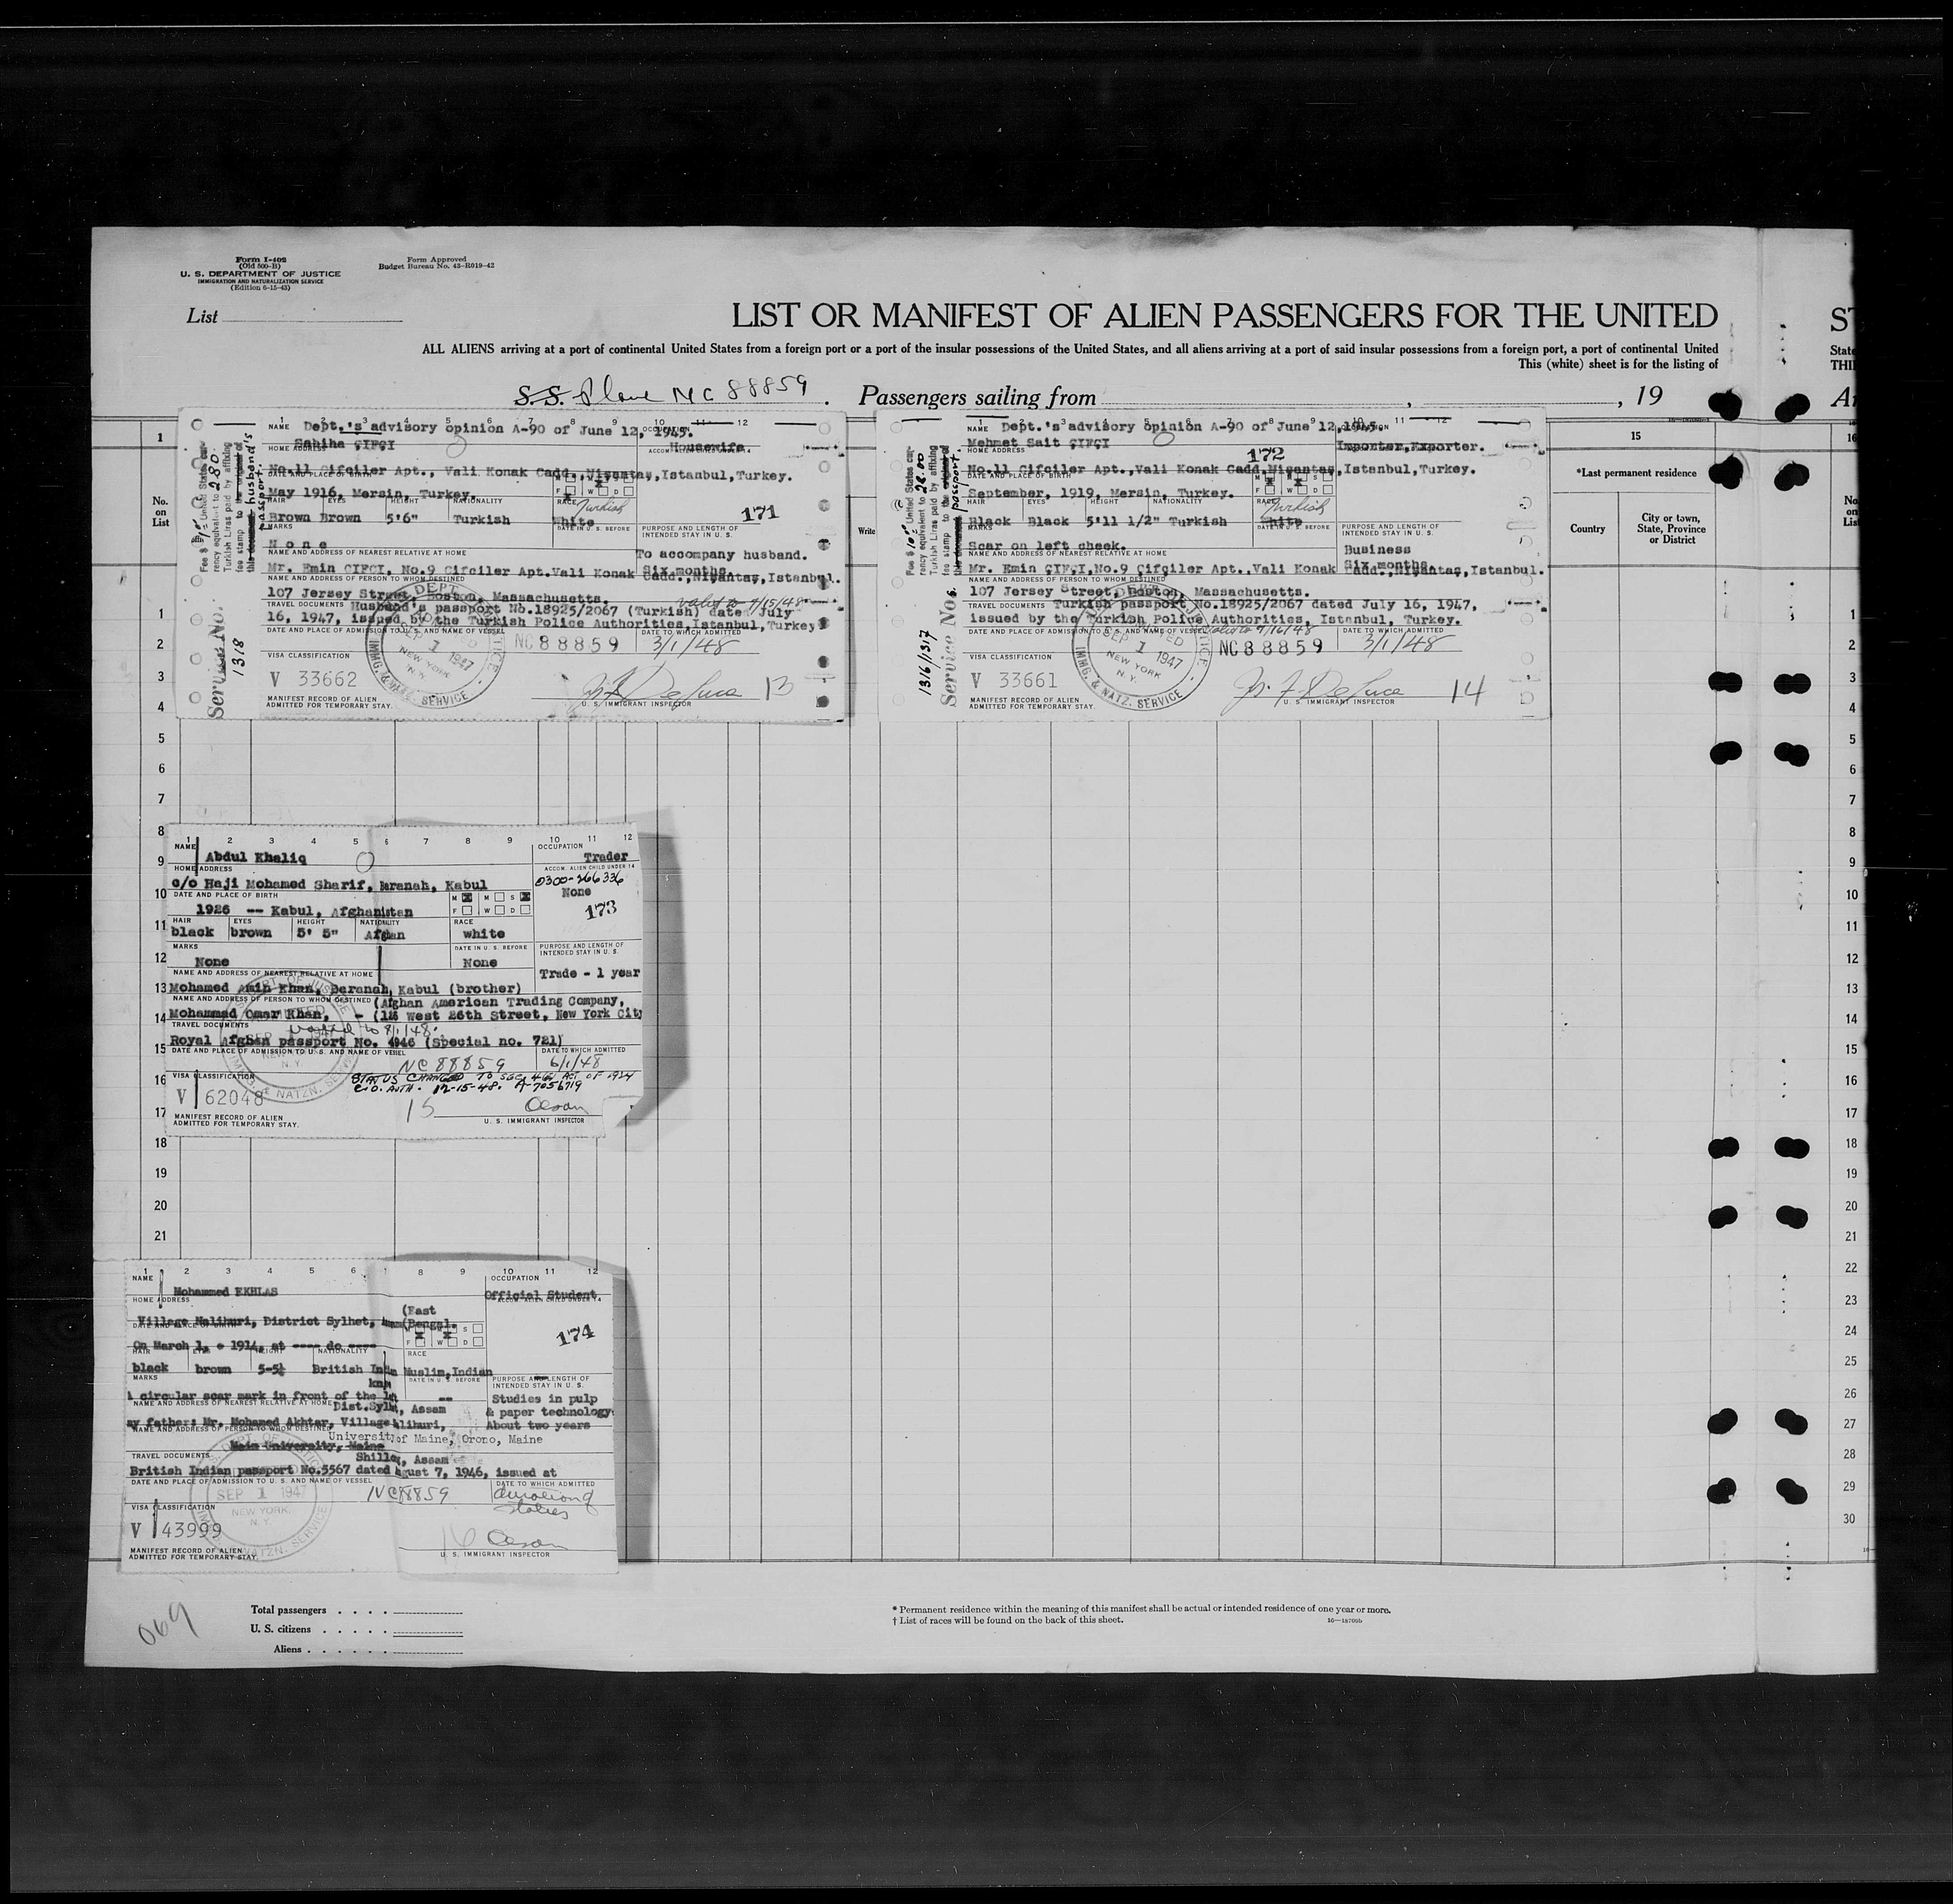 Form I-402
(Old 500-B)
U. S. DEPARTMENT OF JUSTICE
IMMIGRATION AND NATURALIZATION SERVICE
(Edition 6-15-43)
Form Approved
Budget Bureau No. 43-R019-42
List
LIST OR MANIFEST OF ALIEN PASSENGERS FOR THE UNITED
ST
ALL ALIENS arriving at a port of continental United States from a foreign port or a port of the insular possessions of the United States, and all aliens arriving at a port of said insular possessions from a foreign port, a port of continental United
State
This (white) sheet is for the listing of
THI
S.S. Plane NC 88859 . Passengers sailing from , , 19
1 2 3 4 5 6 7 8 9 10 11 12
NAME Dept.'s advisory opinion A-90 of June 12, 1945. OCCUPATION
Sabiha ÇIFÇI Housewife
HOME ADDRESS ACCOM. ALIEN CHILD UNDER 14
No.11 Cifciler Apt., Vali Konak Cadd., Nişantaş, Istanbul, Turkey.
DATE AND PLACE OF BIRTH
May 1916, Mersin, Turkey.
HAIR EYES HEIGHT NATIONALITY RACE Turkish
Brown Brown 5'6" Turkish White 171
MARKS DATE IN U. S. BEFORE PURPOSE AND LENGTH OF INTENDED STAY IN U. S.
None To accompany husband.
NAME AND ADDRESS OF NEAREST RELATIVE AT HOME Six months
Mr. Emin ÇIFÇI, No.9 Cifciler Apt.Vali Konak Cadd., Nişantaş, Istanbul.
NAME AND ADDRESS OF PERSON TO WHOM DESTINED
107 Jersey Street, Boston, Massachusetts. valid to 9/15/48
TRAVEL DOCUMENTS Husband's passport No.18925/2067 (Turkish) date July
16, 1947, issued by the Turkish Police Authorities, Istanbul, Turkey
DATE AND PLACE OF ADMISSION TO U. S. AND NAME OF VESSEL DATE TO WHICH ADMITTED
NC 88859 3/1/48
VISA CLASSIFICATION
V 33662
SEP 1 1947
NEW YORK
N. Y.
IMMG. & NATZ. SERVICE
J. F. DeLuca 13
MANIFEST RECORD OF ALIEN
ADMITTED FOR TEMPORARY STAY.
U. S. IMMIGRANT INSPECTOR
United States cur-
rency equivalent to 2.80
Turkish Liras paid by affixing
fee stamp to
husband's
passport.
Service No.
1318
NAME Dept.'s advisory opinion A-90 of June 12, 1945. OCCUPATION
Mehmet Sait ÇIFÇI Importer, Exporter.
HOME ADDRESS 172
No.11 Cifciler Apt., Vali Konak Cadd, Nişantaş, Istanbul, Turkey.
DATE AND PLACE OF BIRTH
September, 1919, Mersin, Turkey.
HAIR EYES HEIGHT NATIONALITY RACE Turkish
Black Black 5'11 1/2" Turkish White
MARKS DATE IN U. S. BEFORE PURPOSE AND LENGTH OF INTENDED STAY IN U. S.
Scar on left cheek. Business
NAME AND ADDRESS OF NEAREST RELATIVE AT HOME Six months
Mr. Emin ÇIFÇI, No.9 Çifçiler Apt., Vali Konak Cadd., Nişantaş, Istanbul.
NAME AND ADDRESS OF PERSON TO WHOM DESTINED
107 Jersey Street, Boston, Massachusetts.
TRAVEL DOCUMENTS Turkish passport No.18925/2067 dated July 16, 1947,
issued by the Turkish Police Authorities, Istanbul, Turkey.
DATE AND PLACE OF ADMISSION TO U. S. AND NAME OF VESSEL valid to 9/16/48 DATE TO WHICH ADMITTED
NC 88859 3/1/48
VISA CLASSIFICATION
V 33661
SEP 1 1947
NEW YORK
N. Y.
IMMG. & NATZ. SERVICE
J. F. DeLuca 14
MANIFEST RECORD OF ALIEN
ADMITTED FOR TEMPORARY STAY.
U. S. IMMIGRANT INSPECTOR
United States cur-
rency equivalent to 28.00
Turkish Liras paid by affixing
fee stamp to
passport.
Service Nos.
1316/1317
No. on List
Write
15
*Last permanent residence
Country
City or town, State, Province or District
16
1 2 3 4 5 6 7 8 9 10 11 12
NAME OCCUPATION
Abdul Khaliq Trader
HOME ADDRESS ACCOM. ALIEN CHILD UNDER 14
c/o Haji Mohamed Sharif, Baranah, Kabul 0300-266336
DATE AND PLACE OF BIRTH None
1926 -- Kabul, Afghanistan 173
HAIR EYES HEIGHT NATIONALITY RACE
black brown 5' 5" Afghan white
MARKS DATE IN U. S. BEFORE PURPOSE AND LENGTH OF INTENDED STAY IN U. S.
None None
NAME AND ADDRESS OF NEAREST RELATIVE AT HOME Trade - 1 year
Mohamed Amin Khan, Baranah, Kabul (brother)
NAME AND ADDRESS OF PERSON TO WHOM DESTINED (Afghan American Trading Company,
Mohammad Omar Khan, - (126 West 26th Street, New York City
TRAVEL DOCUMENTS valid to 8/1/48.
Royal Afghan passport No. 4946 (Special no. 721)
DATE AND PLACE OF ADMISSION TO U. S. AND NAME OF VESSEL DATE TO WHICH ADMITTED
NC 88859 6/1/48
VISA CLASSIFICATION STATUS CHANGED TO SEC. ACT OF 1924
C.O. AUTH. 12-15-48. A-7056719
V 62048
15 Olson
MANIFEST RECORD OF ALIEN
ADMITTED FOR TEMPORARY STAY.
U. S. IMMIGRANT INSPECTOR
1 2 3 4 5 6 7 8 9 10 11 12
NAME OCCUPATION
Mohammed EKHLAS Official Student
HOME ADDRESS (East
Village Nalihuri, District Sylhet, Assam (Bengal.
DATE AND PLACE OF BIRTH 174
On March 1, 1914, at ---- do ----
HAIR EYES HEIGHT NATIONALITY RACE
black brown 5-5½ British Indian Muslim, Indian
MARKS DATE IN U. S. BEFORE PURPOSE AND LENGTH OF INTENDED STAY IN U. S.
A circular scar mark in front of the -- Studies in pulp
NAME AND ADDRESS OF NEAREST RELATIVE AT HOME Dist. Sylhet, Assam & paper technology
my father: Mr. Mohamed Akhtar, Village Nalihuri, About two years
NAME AND ADDRESS OF PERSON TO WHOM DESTINED University of Maine, Orono, Maine
Main University, Maine
TRAVEL DOCUMENTS Shillong, Assam
British Indian passport No.5567 dated August 7, 1946, issued at
DATE AND PLACE OF ADMISSION TO U. S. AND NAME OF VESSEL DATE TO WHICH ADMITTED
SEP 1 1947 NC 88859 duration of status
NEW YORK,
N. Y.
VISA CLASSIFICATION
V 43999
16 Olson
MANIFEST RECORD OF ALIEN
ADMITTED FOR TEMPORARY STAY
U. S. IMMIGRANT INSPECTOR
069
Total passengers . . . .
U. S. citizens . . . . .
Aliens . . . . . .
* Permanent residence within the meaning of this manifest shall be actual or intended residence of one year or more.
† List of races will be found on the back of this sheet.